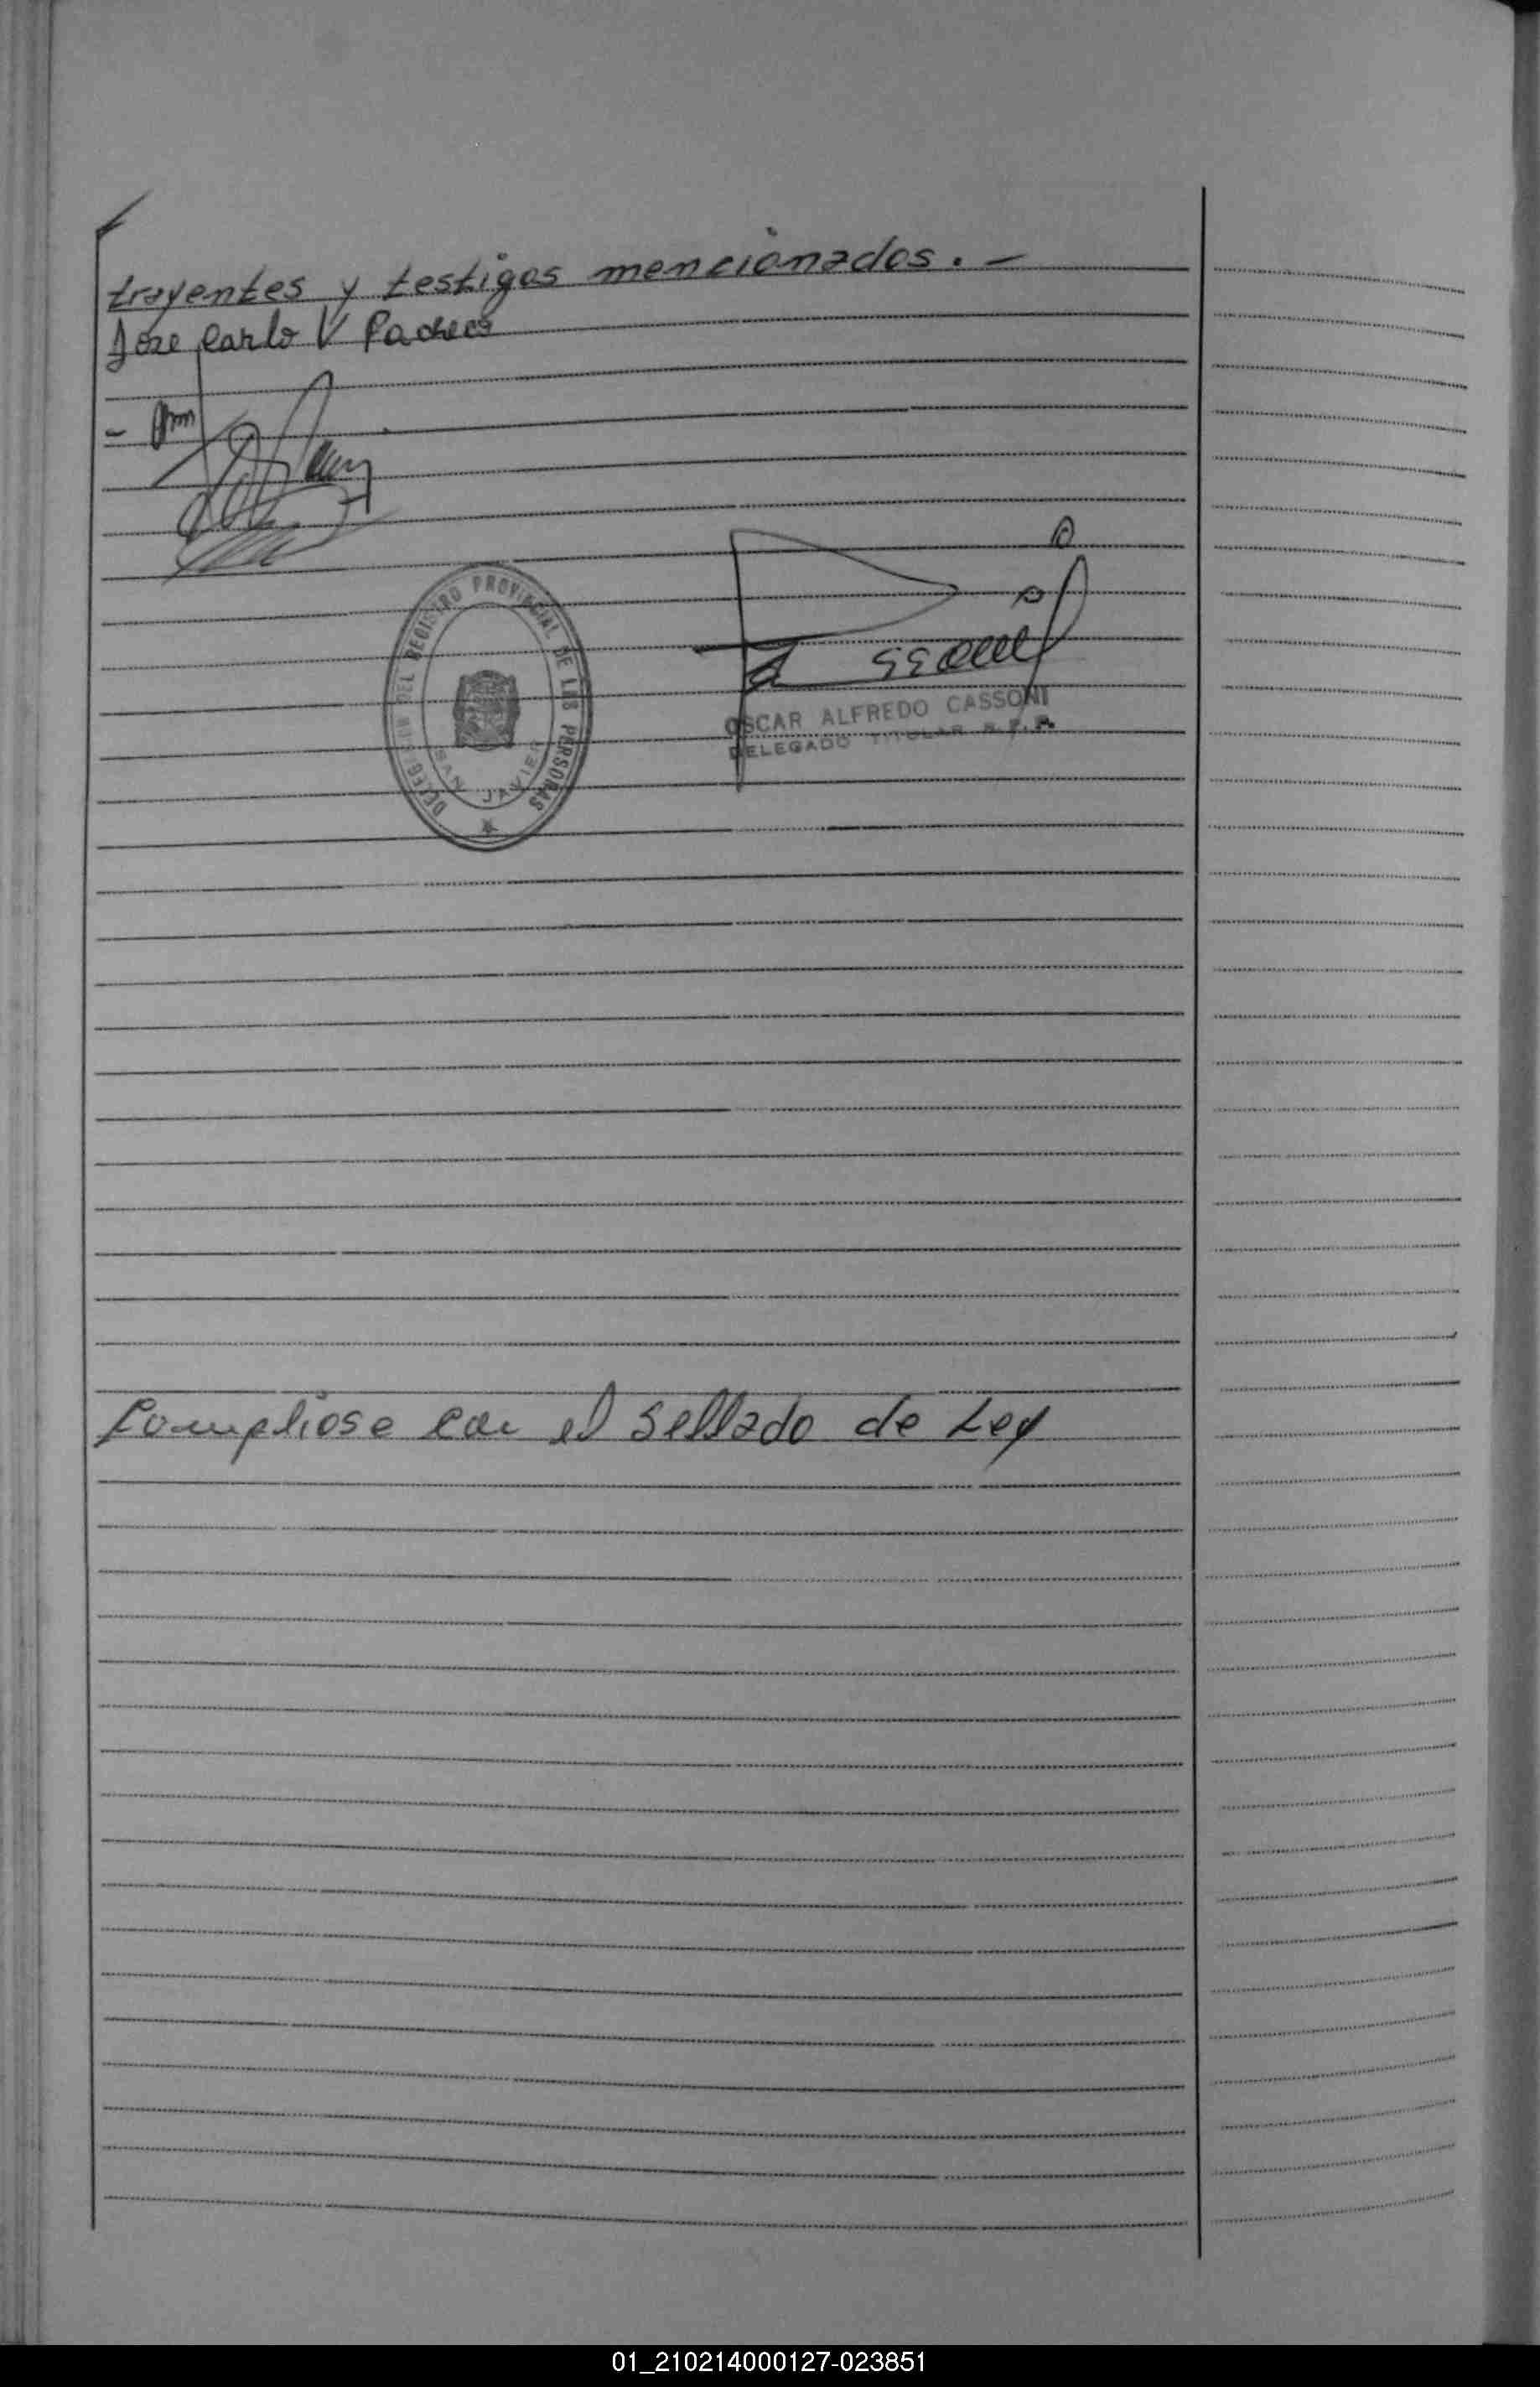 trayentes y testigos mencionados. -
Jose Carlo V Pacheco
DELEGACION DEL REGISTRO PROVINCIAL DE LAS PERSONAS
SAN JAVIER
OSCAR ALFREDO CASSONI
DELEGADO TITULAR R. P. P.
Cumpliose con el Sellado de Ley
01_210214000127-023851